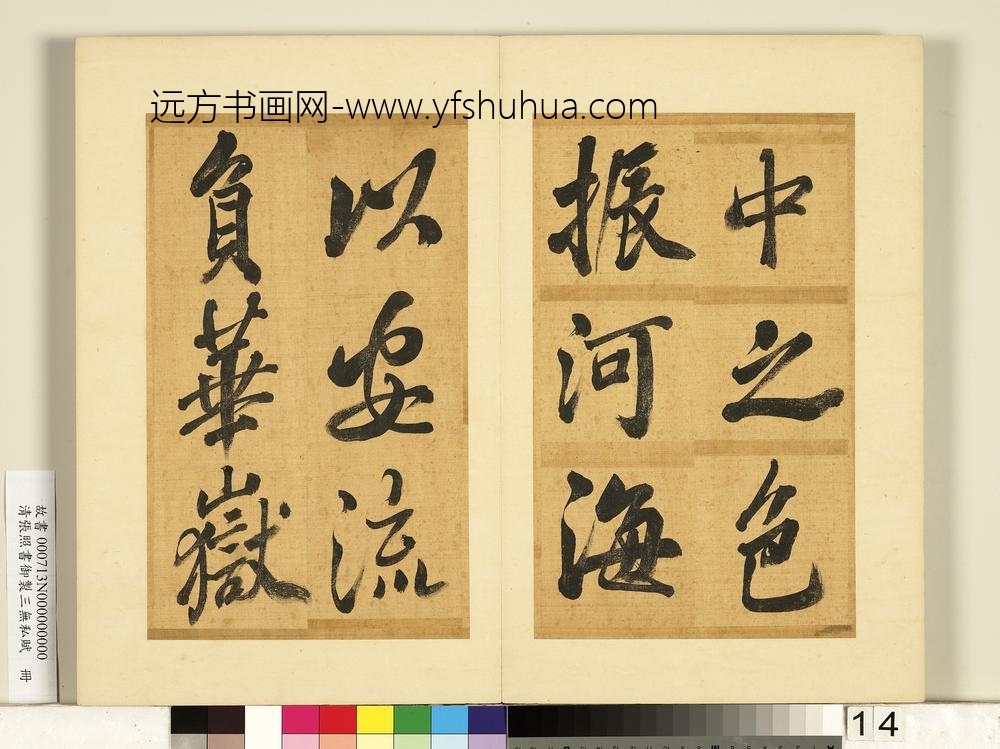 远方书画网-www.yfshuhua.com
中之色
振河海
以安流
負華嶽
故書 000713N000000000
清張照書御製三無私賦 冊
14